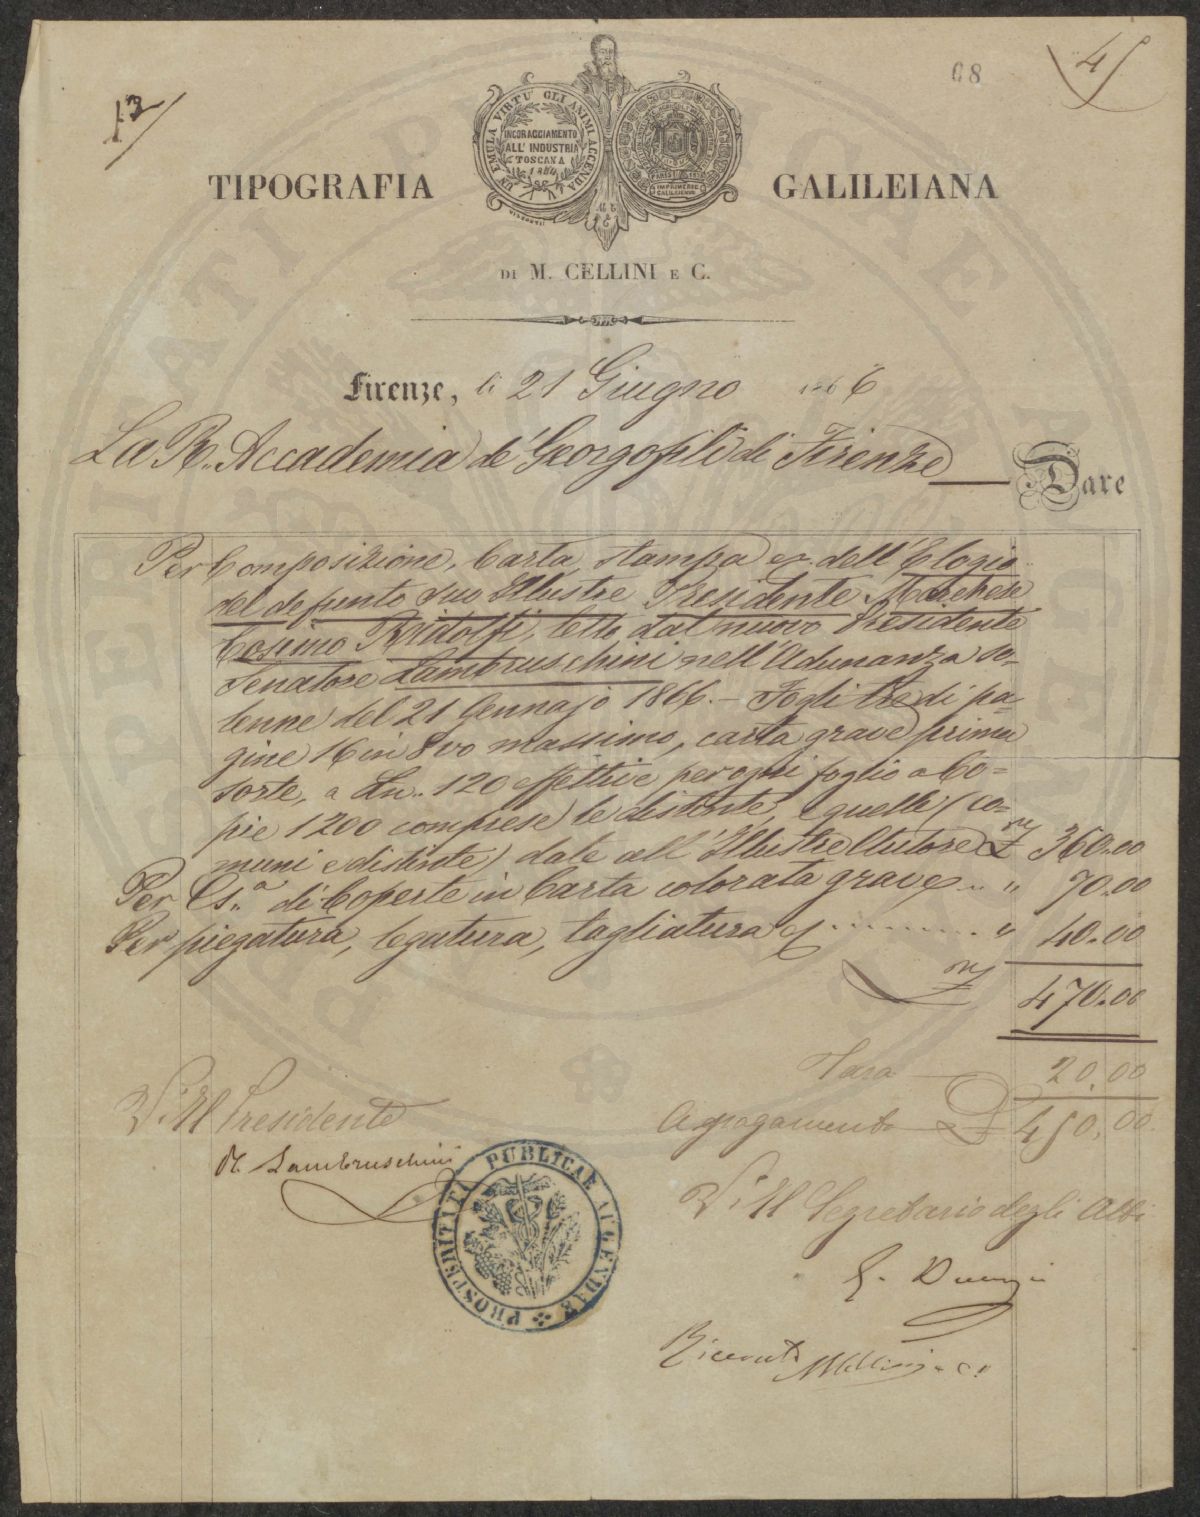 13
68
4
UN'EMULA VIRTU' GLI ANIMI ACCENDA
INCORAGGIAMENTO
ALL' INDUSTRIA
TOSCANA
TIPOGRAFIA GALILEIANA
DI M. CELLINI E C.
Firenze, li 21 Giugno 1866
La R. Accademia de' Georgofili di Firenze Dare
Per Composizione, Carta, stampa ec. dell'Elogio
del defunto suo Illustre Presidente Marchese
Cosimo Ridolfi, letto dal nuovo Presidente
Senatore Lambruschini nell'Adunanza so=
lenne del 21 Gennajo 1866. - Fogli tre di pa=
gine 16 in 8vo massimo, carta grave prima
sorte, a Ln. 120 effettive per ogni foglio a Co=
pie 1200 comprese le distinte, e quelle (co=
muni e distinte) date all'Illustre Autore £ 360.00
Per Cs.a di Coperte in Carta colorata grave " 70.00
Per piegatura, legatura, tagliatura " 40.00
470.00
Tara 20.00
A pagamento £ 450.00
V. Il Presidente
R. Lambruschini
PROSPERITATI PUBLICAE AUGENDAE
V. Il Segretario degli Atti
Ricevuto MCellini e C.